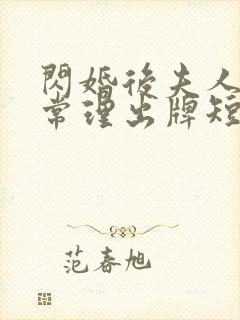 閃婚後夫人
常理出牌短
范春旭